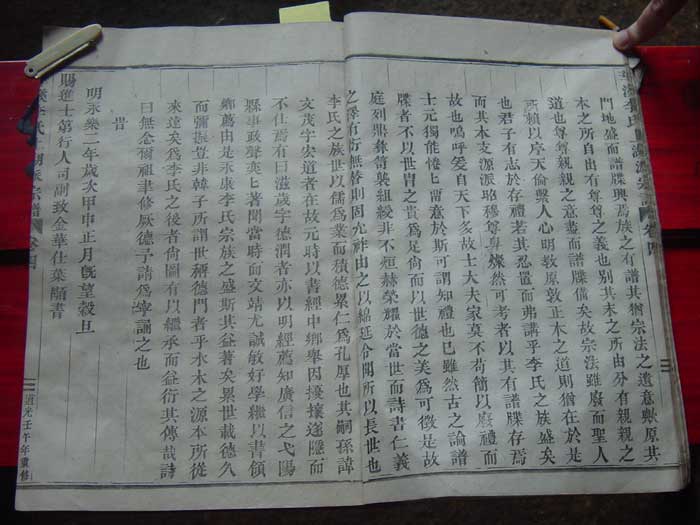 門地盛而譜牒興焉族之有譜其猶宗法之遺意歟原其
本之所自出有尊尊之義也别其末之所由分有親親之
道也尊尊親親之意盡而譜牒備矣故宗法雖廢而聖人
所賴以序天倫繫人心明教原敦正本之道則猶在於是
也君子有志於存禮若其忍置而弗講乎李氏之族盛矣
其本支源派昭穆尊卑燦然可考者以其有譜牒存焉
故也嗚呼爰自天下多故士大夫家莫不苟簡以廢禮而
士元獨能惓惓留意於斯可謂知禮也已雖然古之論譜
牒者不以世冑之貴爲足尙而以世德之美爲可徵是故
庭列鼎尊笥襲組綬非不烜赫榮耀於當世而詩書仁義
之澤有所無替則固允祚由之以綿延令聞所以長世也
李氏之族世以儒爲業而積德累仁爲孔厚也其嗣孫諱
文茂字宏道者在故元時以書經中鄉舉因擾攘遂隱而
不仕焉有曰滋歲字德潤者亦以明經薦知廣信之弋陽
縣事政聲英英著聞當時而文靖尤誠敏好學繼以書領
鄉薦由是永康李氏宗族之盛斯其益著矣累世載德久
而彌振豈非韓子所謂世穪德門者乎水木之源本所從
來遠矣爲李氏之後者尙圖有以繼承而益衍其傳哉詩
曰無念爾祖聿修厥德予請爲寧誦之也
告
明永樂二年歲次甲申正月旣望穀旦
賜進士第行人司副致金華仕葉 書
道光壬午年重修